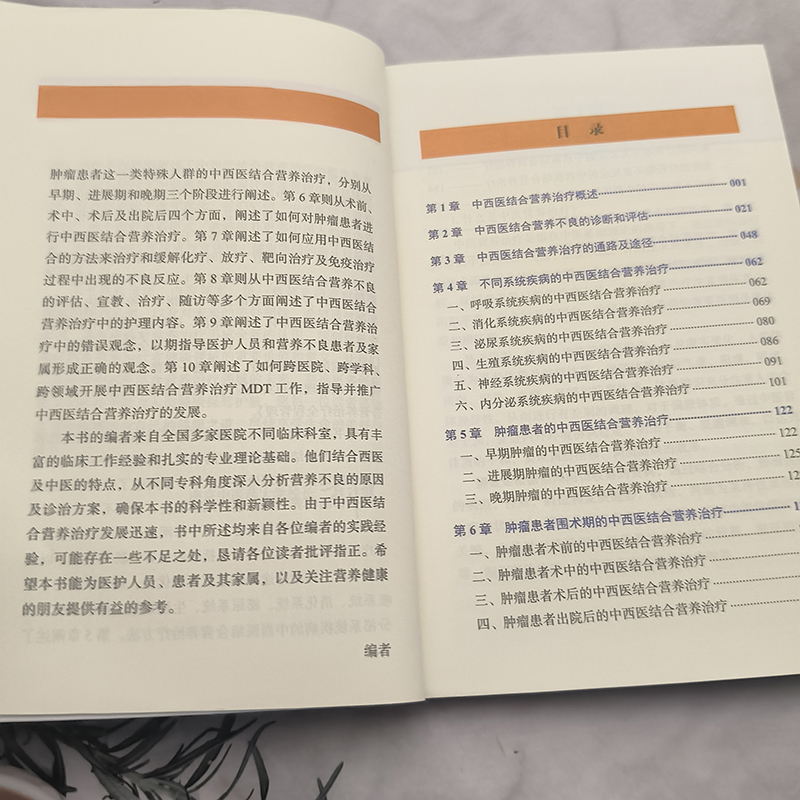 肿瘤患者这一类特殊人群的中西医结合营养治疗，分别从
早期、进展期和晚期三个阶段进行阐述。第 6 章则从术前、
术中、术后及出院后四个方面，阐述了如何对肿瘤患者进
行中西医结合营养治疗。第 7 章阐述了如何应用中西医结
合的方法来治疗和缓解化疗、放疗、靶向治疗及免疫治疗
过程中出现的不良反应。第 8 章则从中西医结合营养不良
的评估、宣教、治疗、随访等多个方面阐述了中西医结合
营养治疗中的护理内容。第 9 章阐述了中西医结合营养治
疗中的错误观念，以期指导医护人员和营养不良患者及家
属形成正确的观念。第 10 章阐述了如何跨医院、跨学科、
跨领域开展中西医结合营养治疗 MDT 工作，指导并推广
中西医结合营养治疗的发展。
本书的编者来自全国多家医院不同临床科室，具有丰
富的临床工作经验和扎实的专业理论基础。他们结合西医
及中医的特点，从不同专科角度深入分析营养不良的原因
及诊治方案，确保本书的科学性和新颖性。由于中西医结
合营养治疗发展迅速，书中所述均来自各位编者的实践经
验，可能存在一些不足之处，恳请各位读者批评指正。希
望本书能为医护人员、患者及其家属，以及关注营养健康
的朋友提供有益的参考。
编者
目 录
第 1 章 中西医结合营养治疗概述 001
第 2 章 中西医结合营养不良的诊断和评估 021
第 3 章 中西医结合营养治疗的通路及途径 048
第 4 章 不同系统疾病的中西医结合营养治疗 062
一、呼吸系统疾病的中西医结合营养治疗 062
二、消化系统疾病的中西医结合营养治疗 069
三、泌尿系统疾病的中西医结合营养治疗 080
四、生殖系统疾病的中西医结合营养治疗 086
五、神经系统疾病的中西医结合营养治疗 091
六、内分泌系统疾病的中西医结合营养治疗 101
第 5 章 肿瘤患者的中西医结合营养治疗 122
一、早期肿瘤的中西医结合营养治疗 122
二、进展期肿瘤的中西医结合营养治疗 125
三、晚期肿瘤的中西医结合营养治疗 12
第 6 章 肿瘤患者围术期的中西医结合营养治疗 1
一、肿瘤患者术前的中西医结合营养治疗
二、肿瘤患者术中的中西医结合营养治疗
三、肿瘤患者术后的中西医结合营养治疗
四、肿瘤患者出院后的中西医结合营养治疗